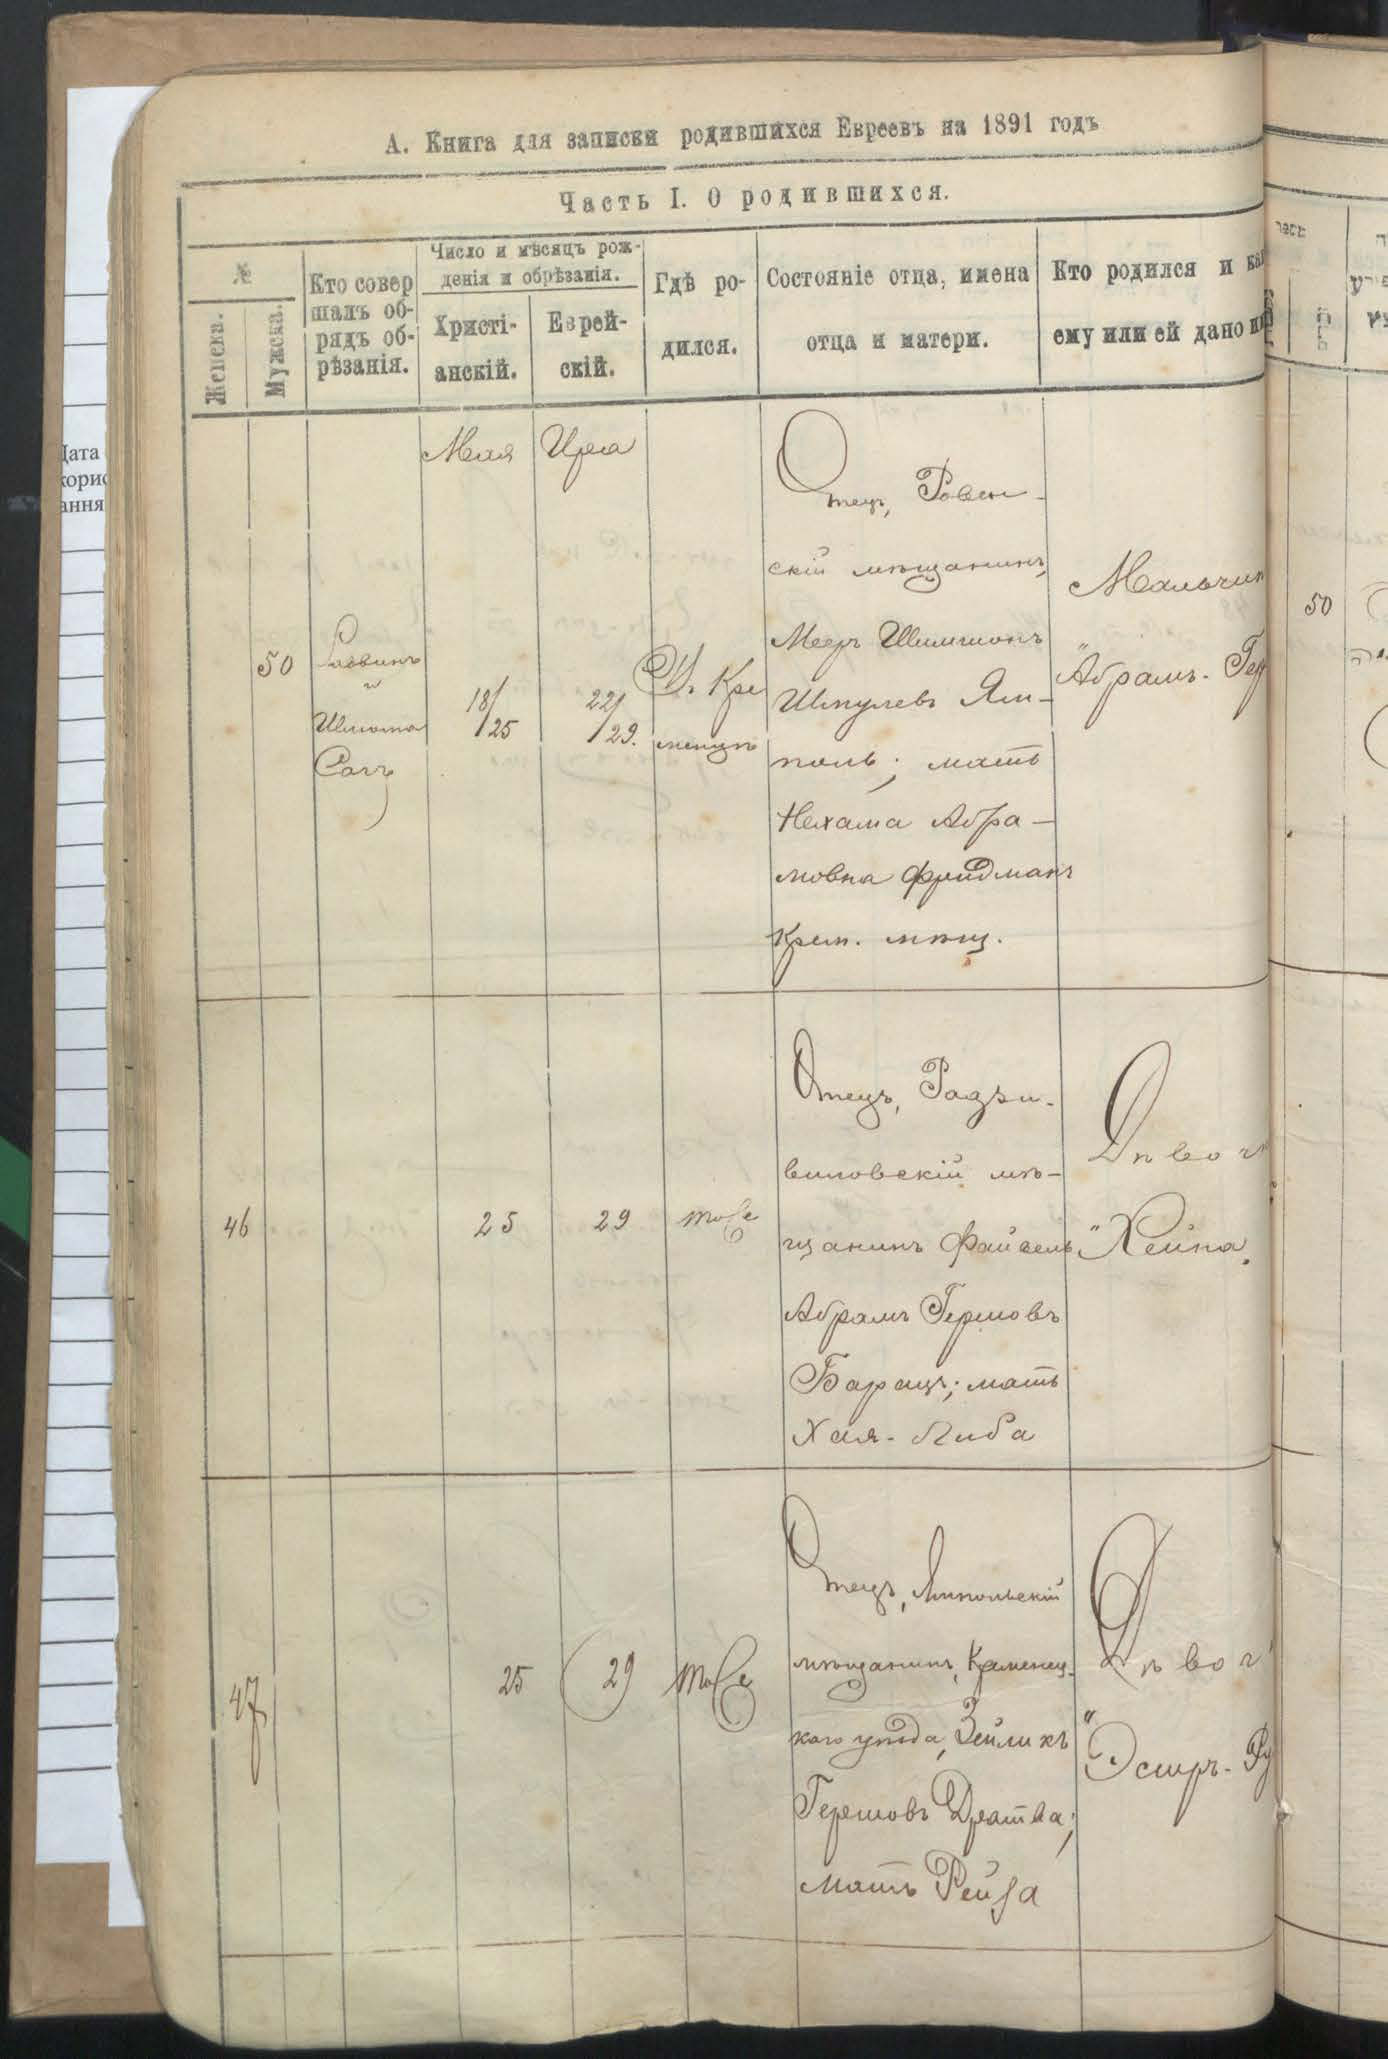 А. Книга для записки родившихся Евреевъ на 1891 годъ
Часть I. О родившихся.
№
Женска.
Мужска.
Кто совер
шалъ об-
рядъ об-
рѣзанія.
Число и мѣсяцъ рож-
денія и обрѣзанія.
Христі-
анскій.
Еврей-
скій.
Гдѣ ро-
дился.
Состояніе отца, имена
отца и матери.
Кто родился и ка
ему или ей дано и
Мая
Іира
50
Раввинъ
и
Шлиома
18/25
22/29.
Въ Кре
менцѣ
Отецъ, Ровен-
скій мѣщанинъ,
Мееръ Шимшонъ
Шмулевъ Ям-
поль; мать
Нехама Абра-
мовна Фридманъ
Крем. мѣщ.
Мальчик
"Абрамъ-Ге
50
46
25
29
тоже
Отецъ, Радзи-
виловскій мѣ-
щанинъ Файвель
Абрамъ Гершовъ
Барацъ; мать
Хая-Либа
Дѣвоч
"Хейна.
47
25
29
тоже
Отецъ, Ямпольскій
мѣщанинъ, Кременец-
каго уѣзда, Зейликъ
Гершовъ Дратва;
мать Рейза
Дѣвоч
"Эстръ-Ру
Дата
корис
ання